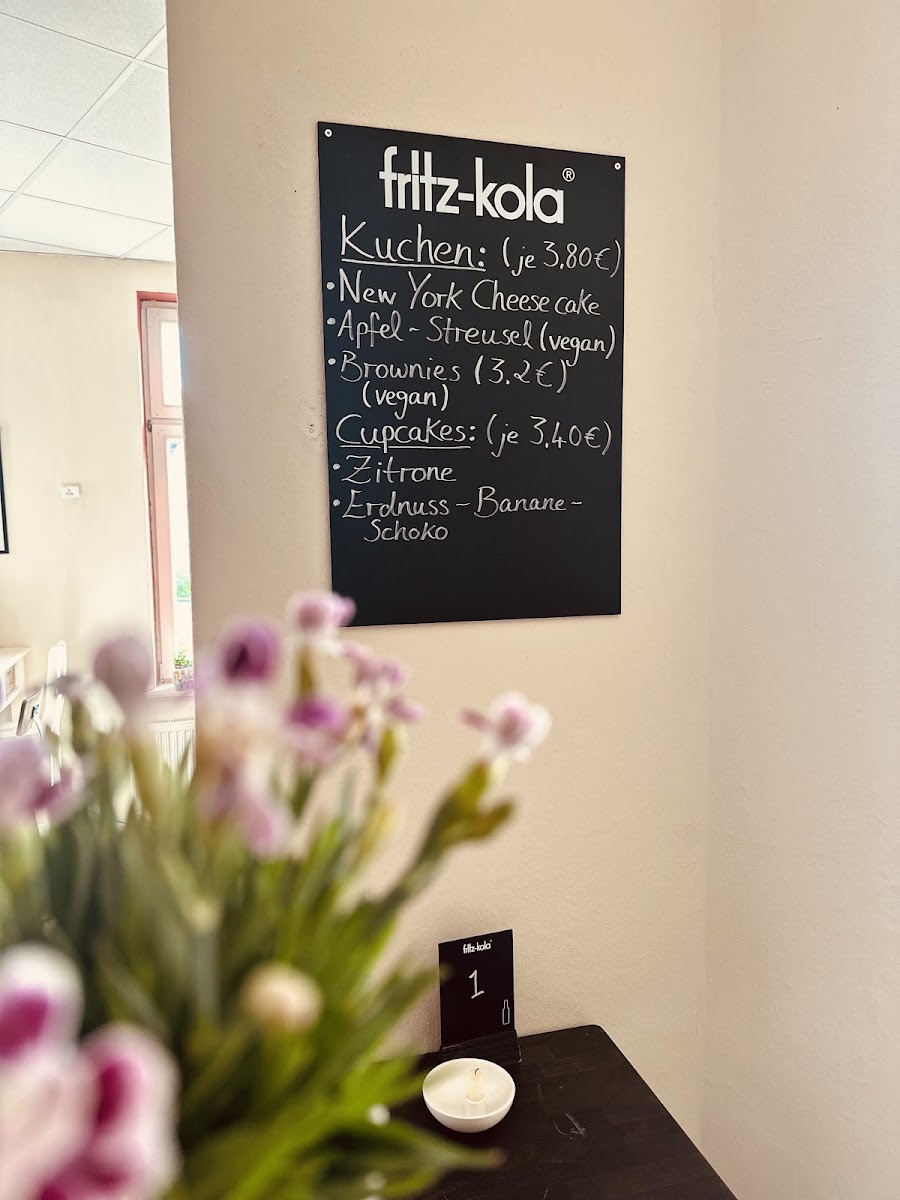 fritz-kola®
Kuchen: (je 3.80€)
•New York Cheese cake
•Apfel-Streusel (vegan)
•Brownies (3.2€)
(vegan)
Cupcakes: (je 3.40€)
•Zitrone
•Erdnuss-Banane-
Schoko
fritz-kola®
1